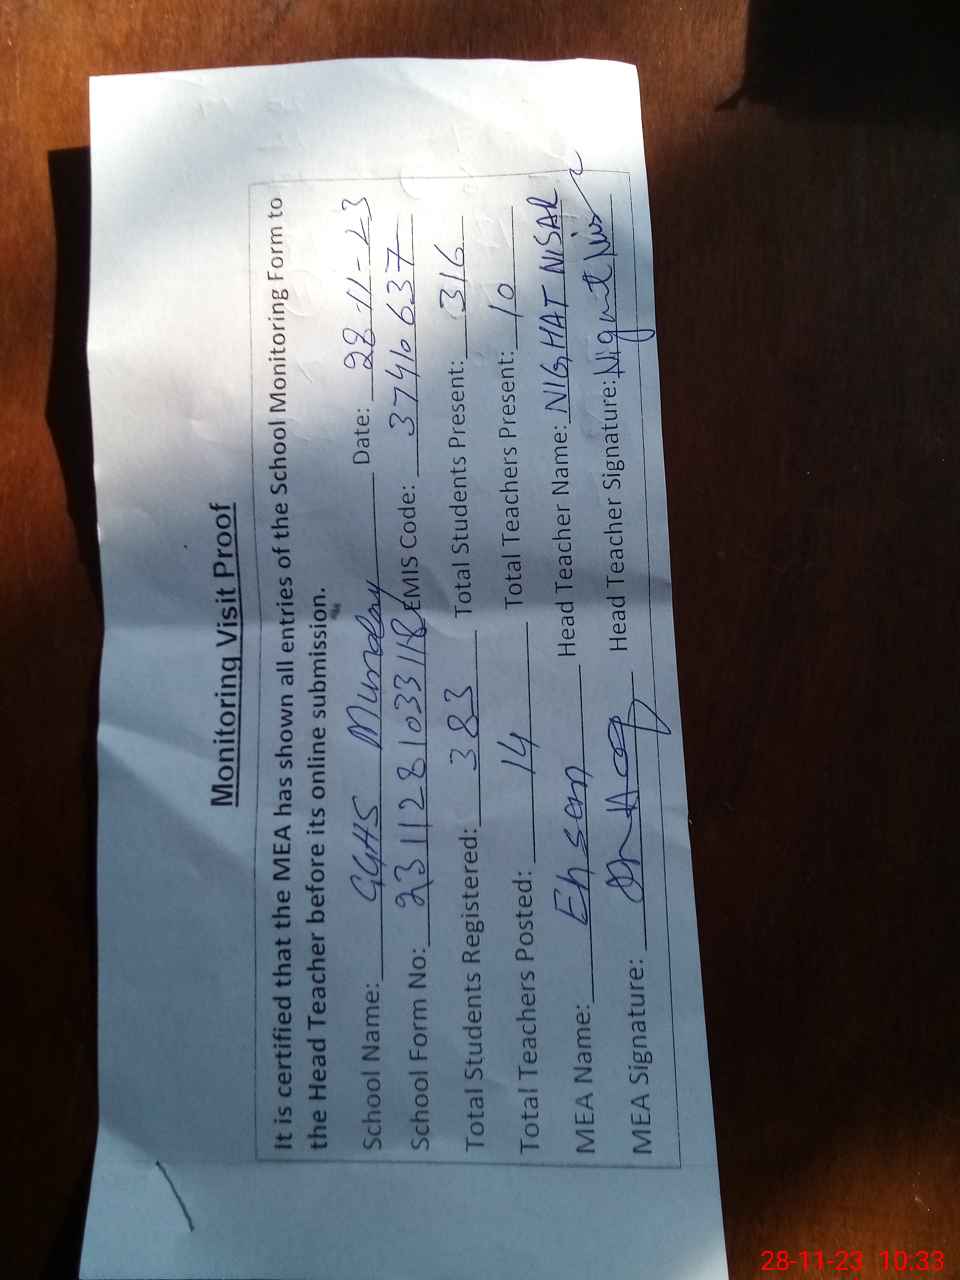 Monitoring Visit Proof
It is certified that the MEA has shown all entries of the School Monitoring Form to
the Head Teacher before its online submission.
School Name: GGHS Munday Date: 28-11-23
School Form No: 231128103311 EMIS Code: 37410637
Total Students Registered: 383 Total Students Present: 316
Total Teachers Posted: 14 Total Teachers Present: 10
MEA Name: Ehsan Head Teacher Name: NIGHAT NISAR
MEA Signature: Head Teacher Signature: Nighat Nisar
28-11-23 10:33